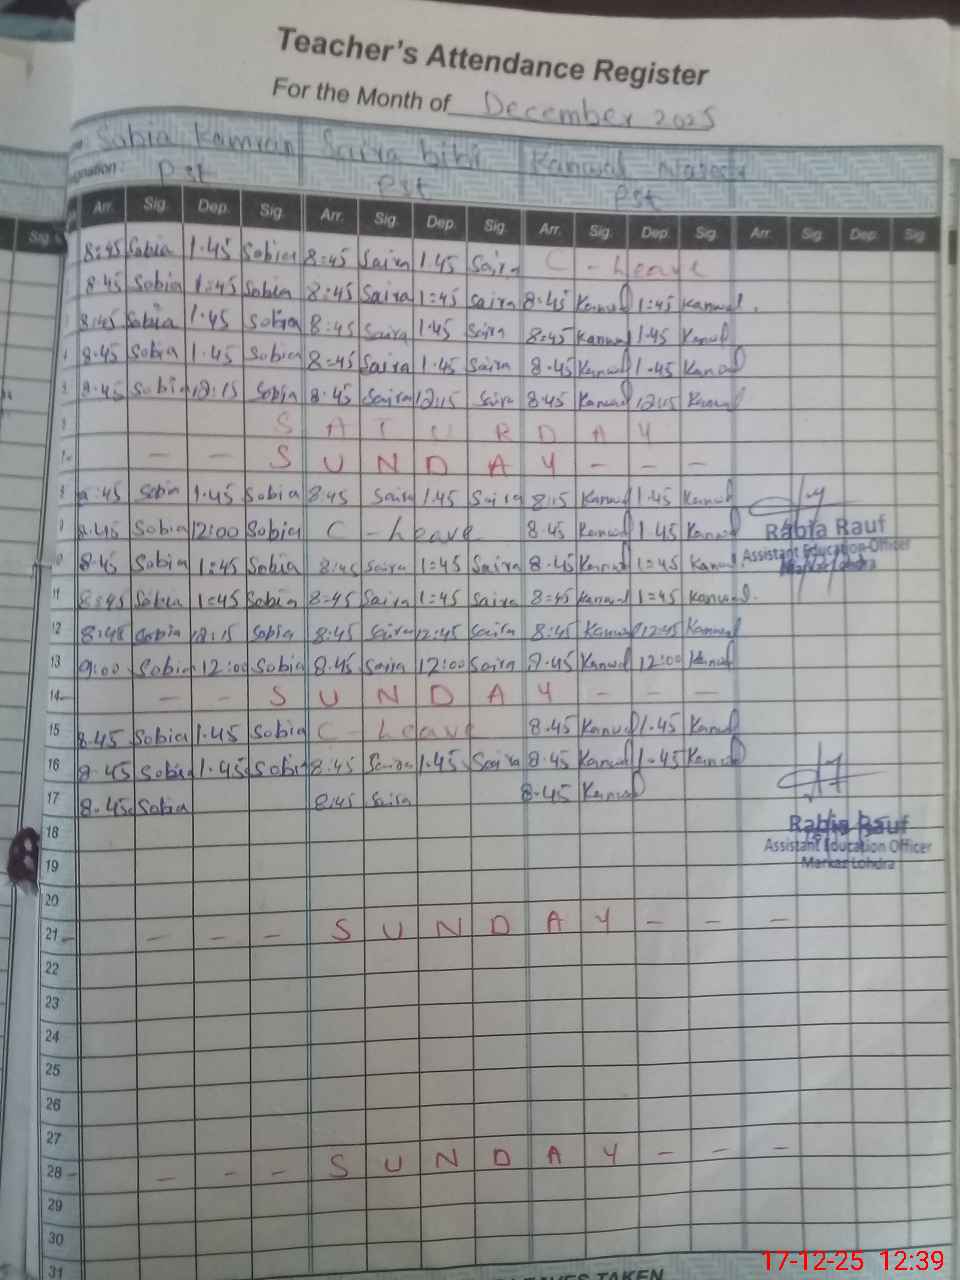 Teacher's Attendance Register
For the Month of December 2025
Sobia Kamran Saira bibi Kanwal
Pst Pst Pst
Arr. Sig. Dep. Sig. Arr. Sig. Dep. Sig. Arr. Sig. Dep. Sig. Arr. Sig. Dep. Sig
8:45 Sobia 1.45 Sobia 8:45 Saira 1.45 Saira C - Leave
8.45 Sobia 1:45 Sobia 8:45 Saira 1:45 Saira 8.45 Kanwal 1:45 Kanwal.
8:45 Sobia 1.45 Sobia 8:45 Saira 1.45 Saira 8:45 Kanwal 1.45 Kanwal
8.45 Sobia 1.45 Sobia 8:45 Saira 1.45 Saira 8.45 Kanwal 1.45 Kanwal
8.45 Sobia 12:15 Sobia 8.45 Saira 12:15 Saira 8.45 Kanwal 12:15 Kanwal
S A T U R D A Y
- - S U N D A Y - - -
8 :45 Sobia 1.45 Sobia 8:45 Saira 1.45 Saira 8:15 Kanwal 1.45 Kanwal
9 8.45 Sobia 12:00 Sobia C - Leave 8.45 Kanwal 1.45 Kanwal
Rabia Rauf
Assistant Education Officer
8.45 Sobia 1:45 Sobia 8:45 Saira 1:45 Saira 8.45 Kanwal 1:45 Kanwal
11 8:45 Sobia 1:45 Sobia 8:45 Saira 1:45 Saira 8:45 Kanwal 1:45 Kanwal.
12 8:45 Sobia 12:15 Sobia 8:45 Saira 12:45 Saira 8:45 Kanwal 12:45 Kanwal
13 9:00 Sobia 12:00 Sobia 8.45 Saira 12:00 Saira 8.45 Kanwal 12:00 Kanwal
14 - - S U N D A Y - - -
15 8.45 Sobia 1.45 Sobia C - Leave 8.45 Kanwal 1.45 Kanwal
16 8.45 Sobia 1.45 Sobia 8:45 Saira 1.45 Saira 8.45 Kanwal 1.45 Kanwal
17 8.45 Sobia 8:45 Saira 8.45 Kanwal
18
Rabia Rauf
Assistant Education Officer
Markaz Lohdra
19
20
21 - - - - S U N D A Y - - -
22
23
24
25
26
27
28 - - - - S U N D A Y - - -
29
30
31
TAKEN
17-12-25 12:39